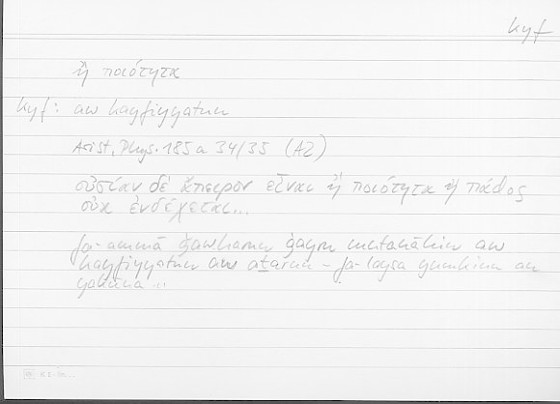 kyf
ἢ ποιότητα
kyf: aw kayfīyatun
Arist. Phys. 185 a 34/35 (A2)
οὐσίαν δὲ ἄπειρον εἶναι ἢ ποιότητα ἢ πάθος
οὐκ ἐνδέχεται...
fa-ammā ǧawharun ġayru mutanāhin aw
kayfīyatun aw aṯarun – fa-laysa yumkinu an
yakūna ..